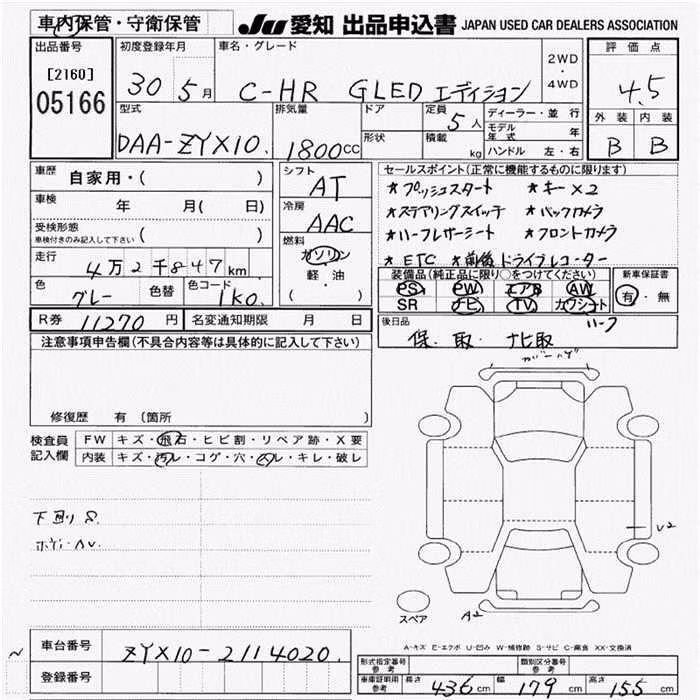 車内保管・守衛保管
JU 愛知 出品申込書 JAPAN USED CAR DEALERS ASSOCIATION
出品番号
[2160]
05166
初度登録年月
30 5月
車名・グレード
C-HR GLED エディション
2WD
・
4WD
評価点
4.5
外装 内装
B B
型式
DAA-ZYX10.
排気量
1800cc
ドア
形状
定員
5人
積載
kg
ディーラー・並行
モデル年式 年
ハンドル 左・右
車歴
自家用・( )
車検
年 月( 日)
受検形態
車検付きのみ記入して下さい ( )
走行
4万2千847km
色
グレー
色替
色コード
1K0.
シフト
AT
冷房
AAC
燃料
ガソリン
・
軽・油
( )
セールスポイント(正常に機能するものに限ります)
★プッシュスタート ★キー×2
★ステアリングスイッチ ★バックカメラ
★ハーフレザーシート ★フロントカメラ
★ETC ★前後ドライブレコーダー
装備品(純正品に限り○をつけてください)
PS PW エアB AW
SR ナビ TV カワシート
ハーフ
新車保証書
有・無
R券 11270円
名変通知期限 月 日
後日品
保. 取. ナビ取
注意事項申告欄(不具合内容等は具体的に記入して下さい)
修復歴 有 〔箇所 〕
検査員記入欄
FW キズ・飛石・ヒビ割・リペア跡・X要
内装 キズ・汚レ・コゲ・穴・スレ・キレ・破レ
下廻りS.
U2
A2
スペア
A-キズ E-エクボ U-凹み W-補修跡 S-サビ C-腐食 XX-交換済
車台番号
ZYX10-2114020.
登録番号
形式指定番号
参考
類別区分番号
参考
車庫証明用
参考
長さ 436cm
幅 179cm
高さ 155cm